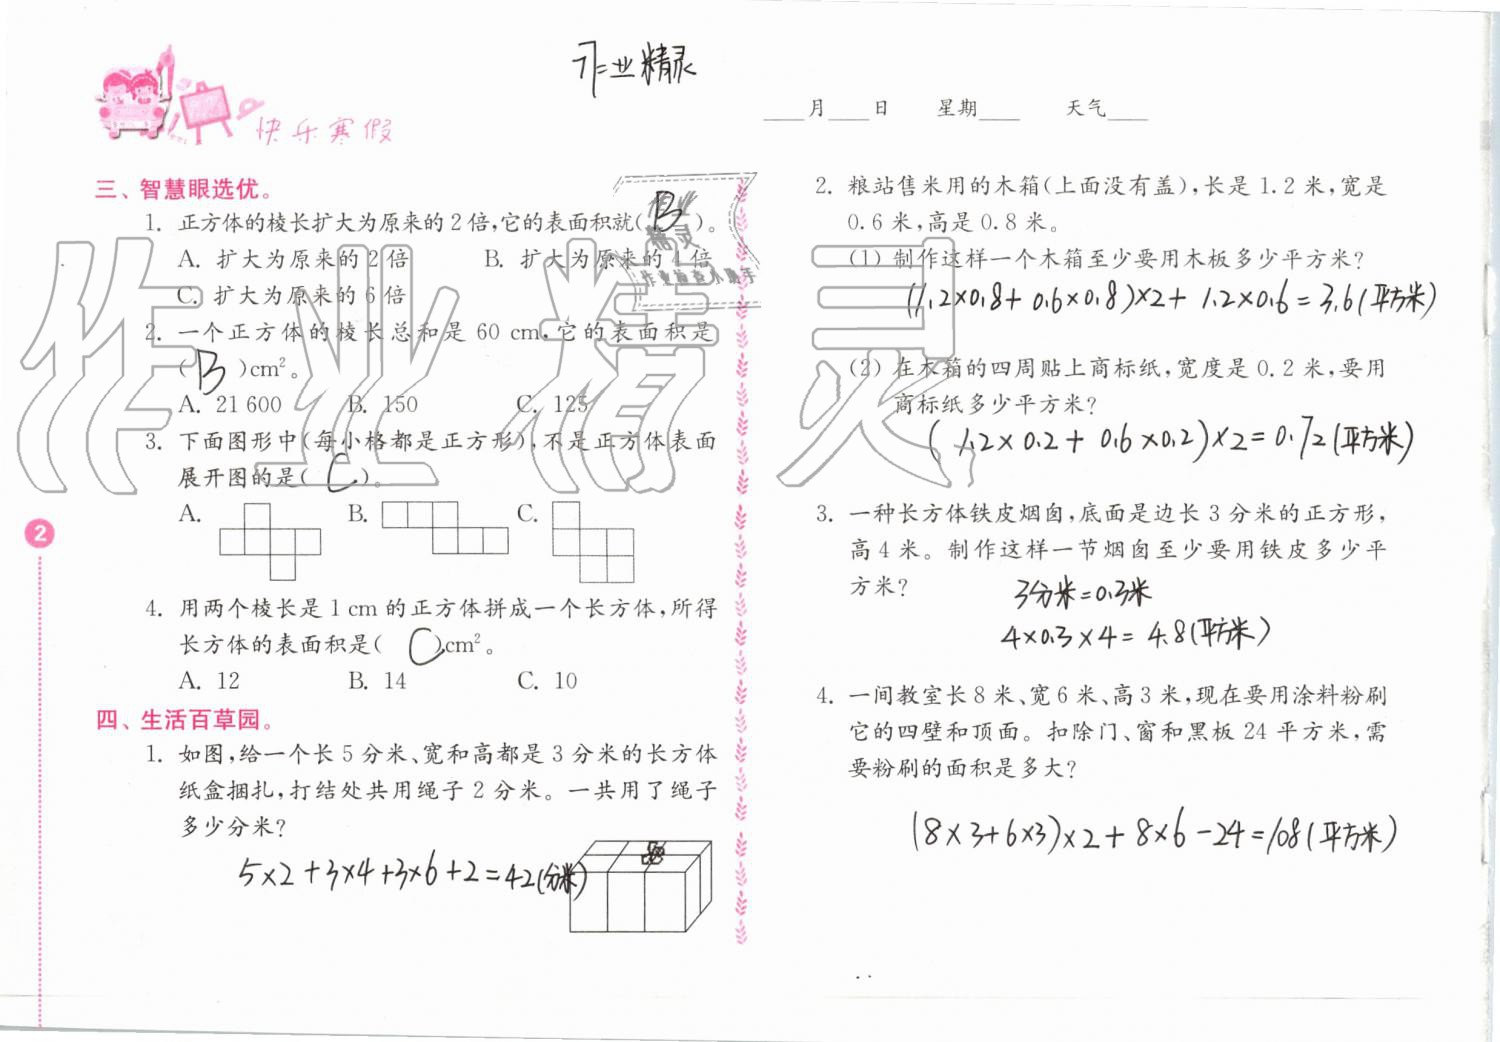 作业精灵
快乐寒假
____月____日 星期____ 天气____
三、智慧眼选优。
1. 正方体的棱长扩大为原来的2倍,它的表面积就( B )。
A. 扩大为原来的2倍 B. 扩大为原来的4倍
C. 扩大为原来的6倍
2. 一个正方体的棱长总和是60 cm,它的表面积是
( B )cm²。
A. 21 600 B. 150 C. 125
3. 下面图形中(每小格都是正方形),不是正方体表面
展开图的是( C )。
A. B. C.
4. 用两个棱长是1 cm的正方体拼成一个长方体,所得
长方体的表面积是( C )cm²。
A. 12 B. 14 C. 10
四、生活百草园。
1. 如图,给一个长5分米、宽和高都是3分米的长方体
纸盒捆扎,打结处共用绳子2分米。一共用了绳子
多少分米?
5×2+3×4+3×6+2=42(分米)
2
2. 粮站售米用的木箱(上面没有盖),长是1.2米,宽是
0.6米,高是0.8米。
(1) 制作这样一个木箱至少要用木板多少平方米?
(1.2×0.8+0.6×0.8)×2+1.2×0.6=3.6(平方米)
(2) 在木箱的四周贴上商标纸,宽度是0.2米,要用
商标纸多少平方米?
(1.2×0.2+0.6×0.2)×2=0.72(平方米)
3. 一种长方体铁皮烟囱,底面是边长3分米的正方形,
高4米。制作这样一节烟囱至少要用铁皮多少平
方米?
3分米=0.3米
4×0.3×4=4.8(平方米)
4. 一间教室长8米、宽6米、高3米,现在要用涂料粉刷
它的四壁和顶面。扣除门、窗和黑板24平方米,需
要粉刷的面积是多大?
(8×3+6×3)×2+8×6-24=108(平方米)
作业精灵
作业
精灵
作业检查小助手